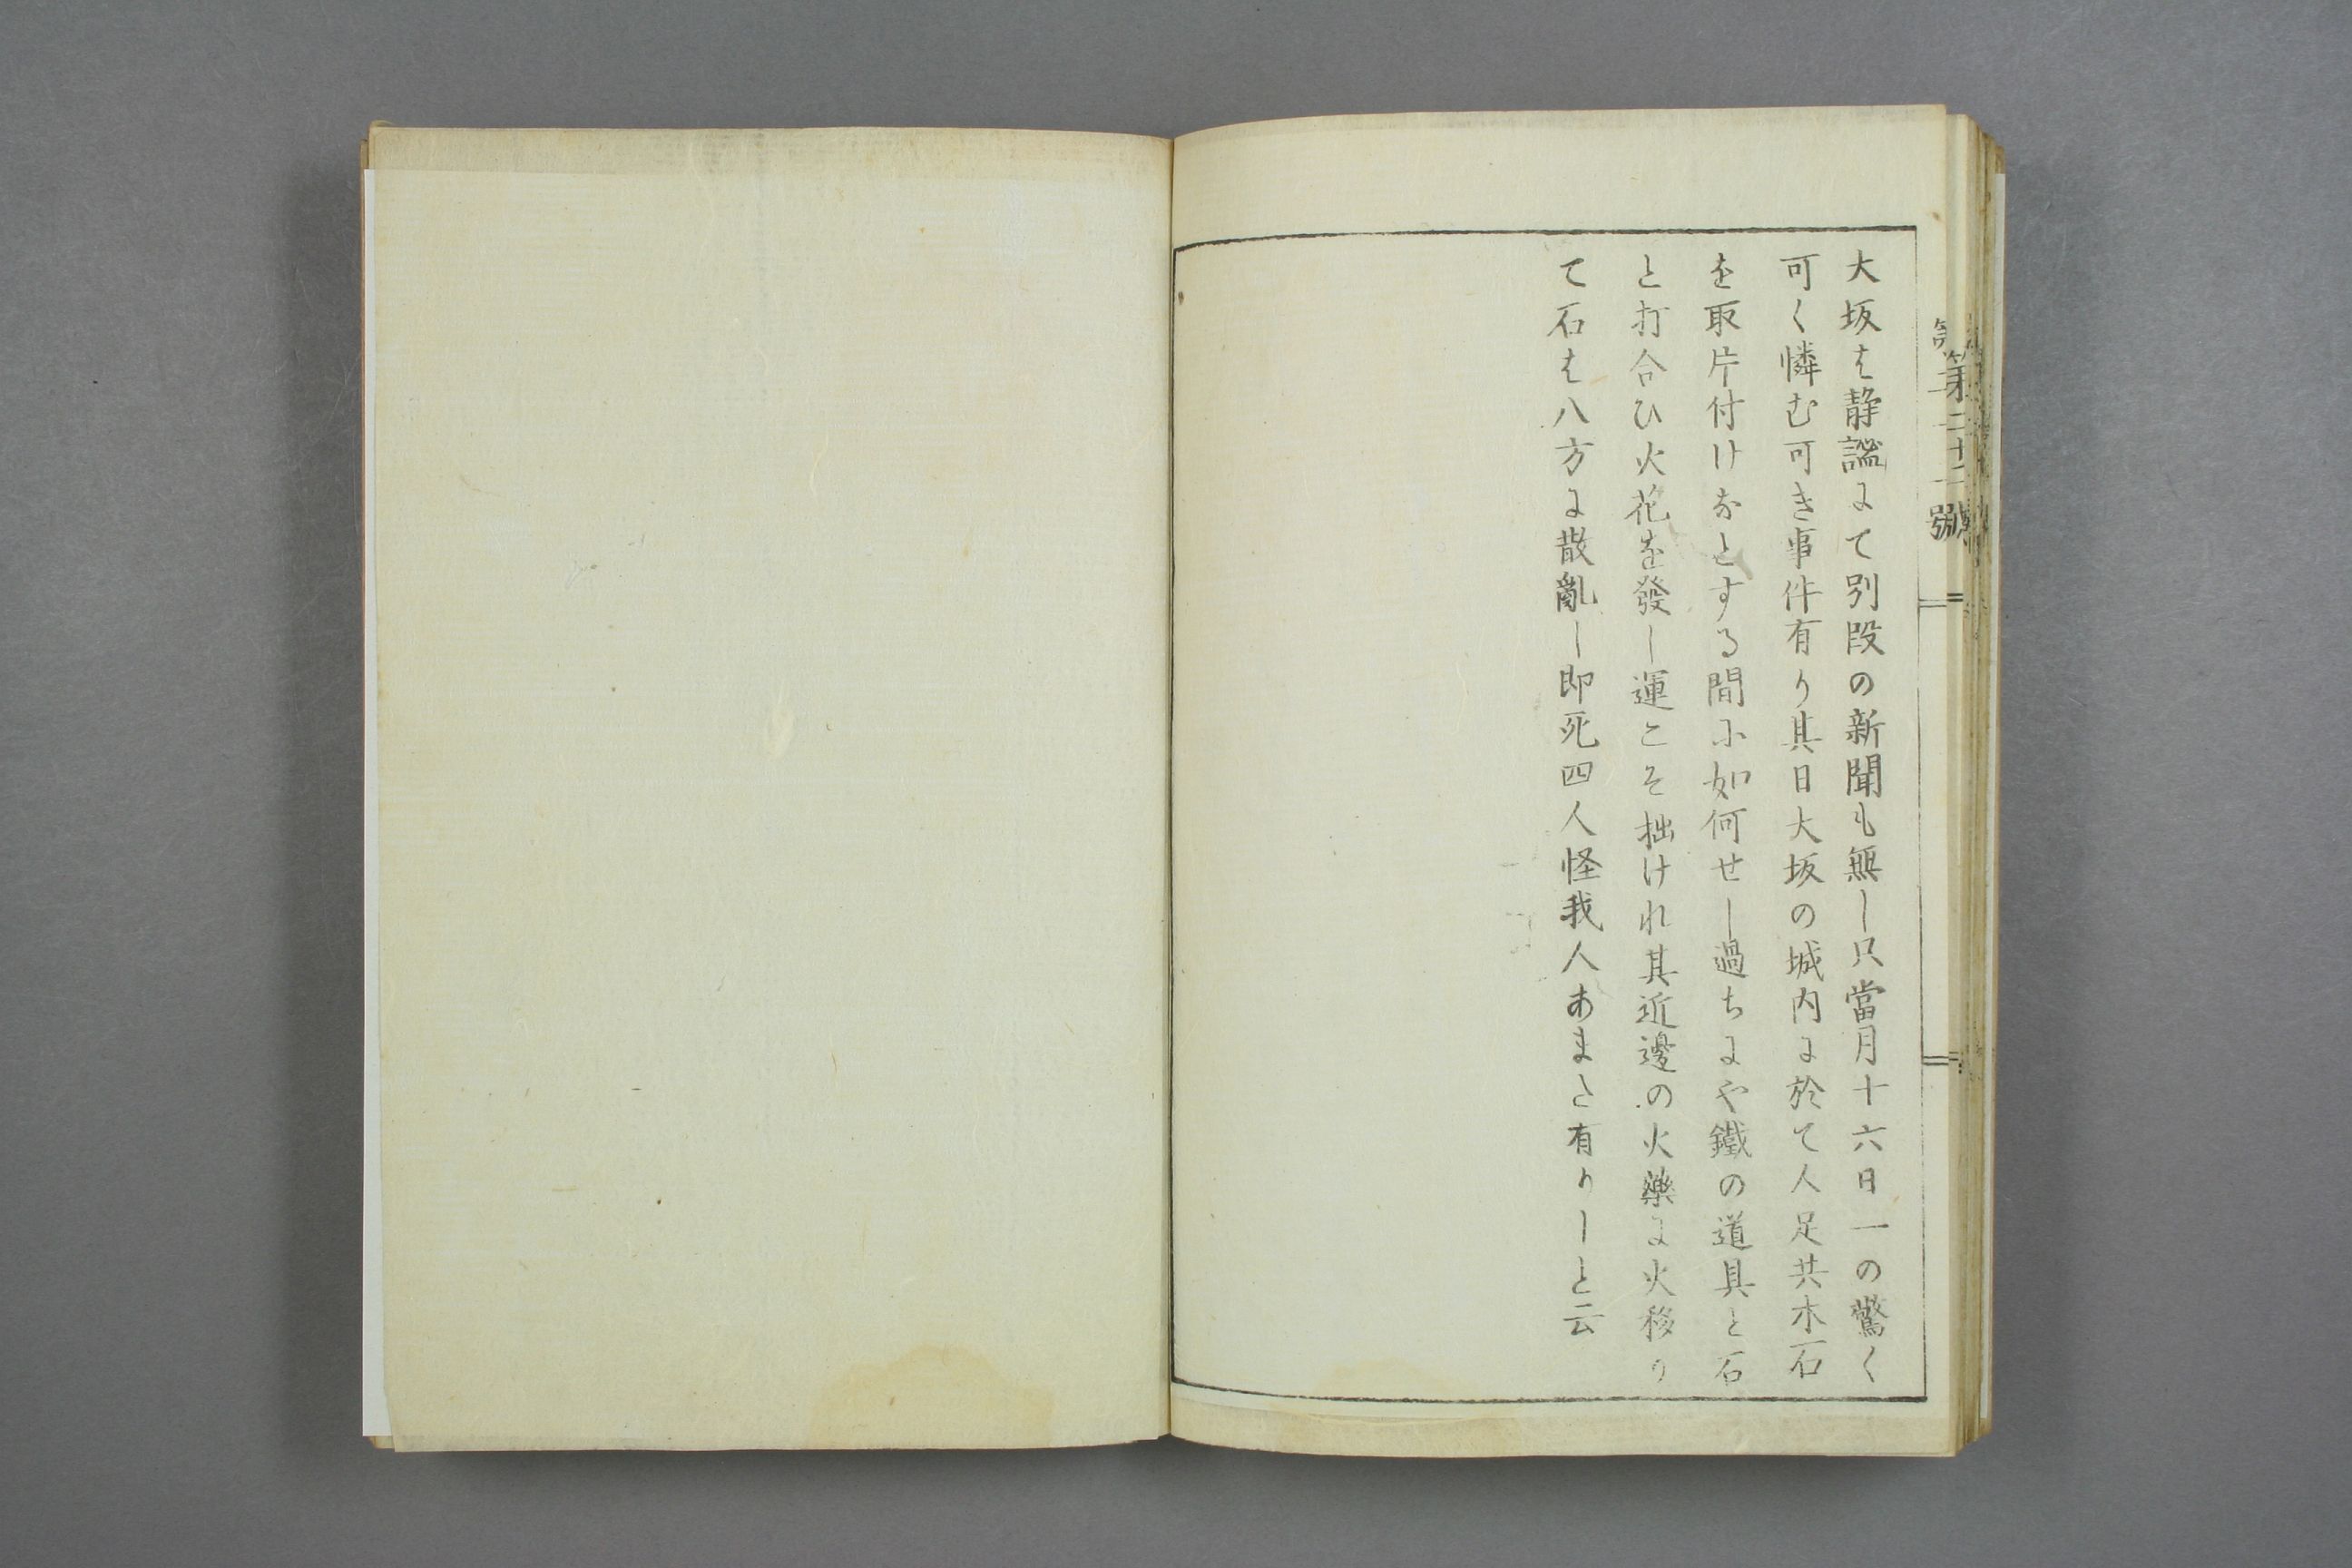 大坂は静謐にて別段の新聞も無し只當月十六日一の驚く
可く憐む可き事件有り其日大坂の城内に於て人足共木石
を取片付けなとする間に如何せし過ちにや鐵の道具と石
と打合ひ火花を發し運こそ拙けれ其近邊の火藥に火移り
て石は八方に散亂し即死四人怪我人あまた有りしと云
第二十二號